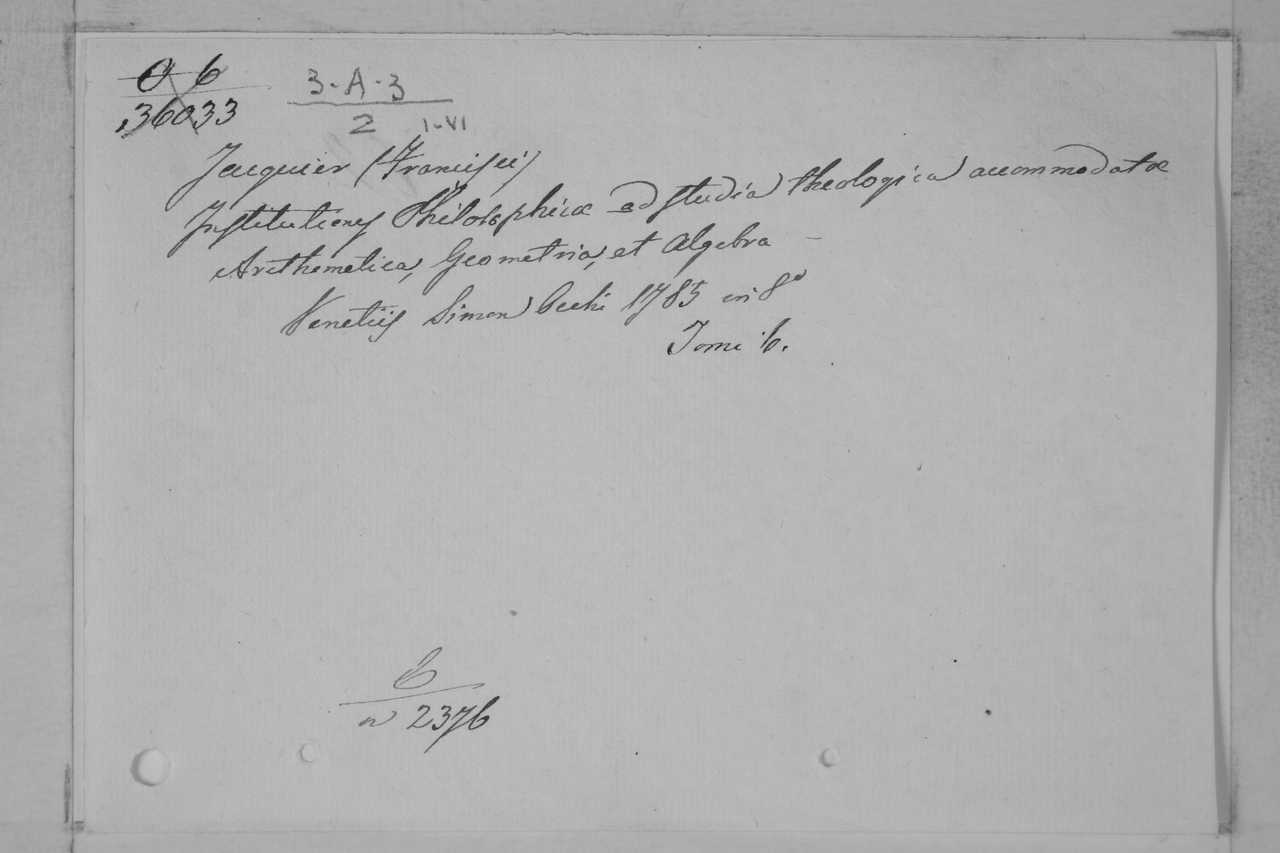 O 6
36033
3-A-3
2 I-VI
Jacquier (Francisci)
Institutiones Philosophicæ ad studia theologica accommodatæ
Arithemetica, Geometria, et Algebra -
Venetiis Simon Occhi 1785 in 8º
Tomi 6.
6
n 2376